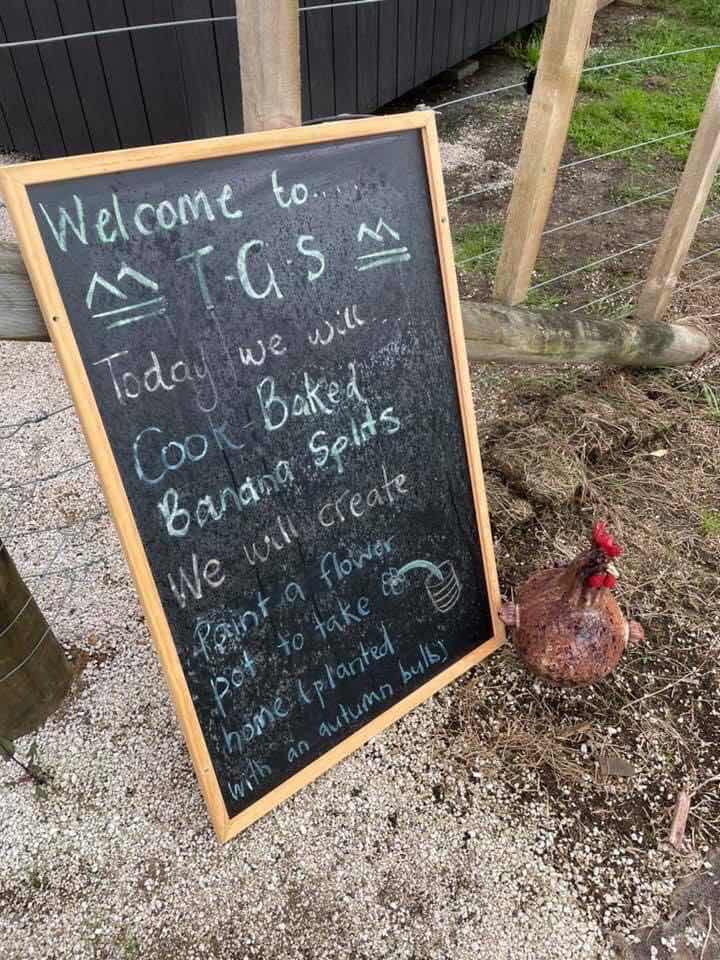 Welcome to....
T.G.S
Today we will...
Cook-Baked
Banana Splits
We will create
Paint a flower
pot to take
home (planted
with an autumn bulb)